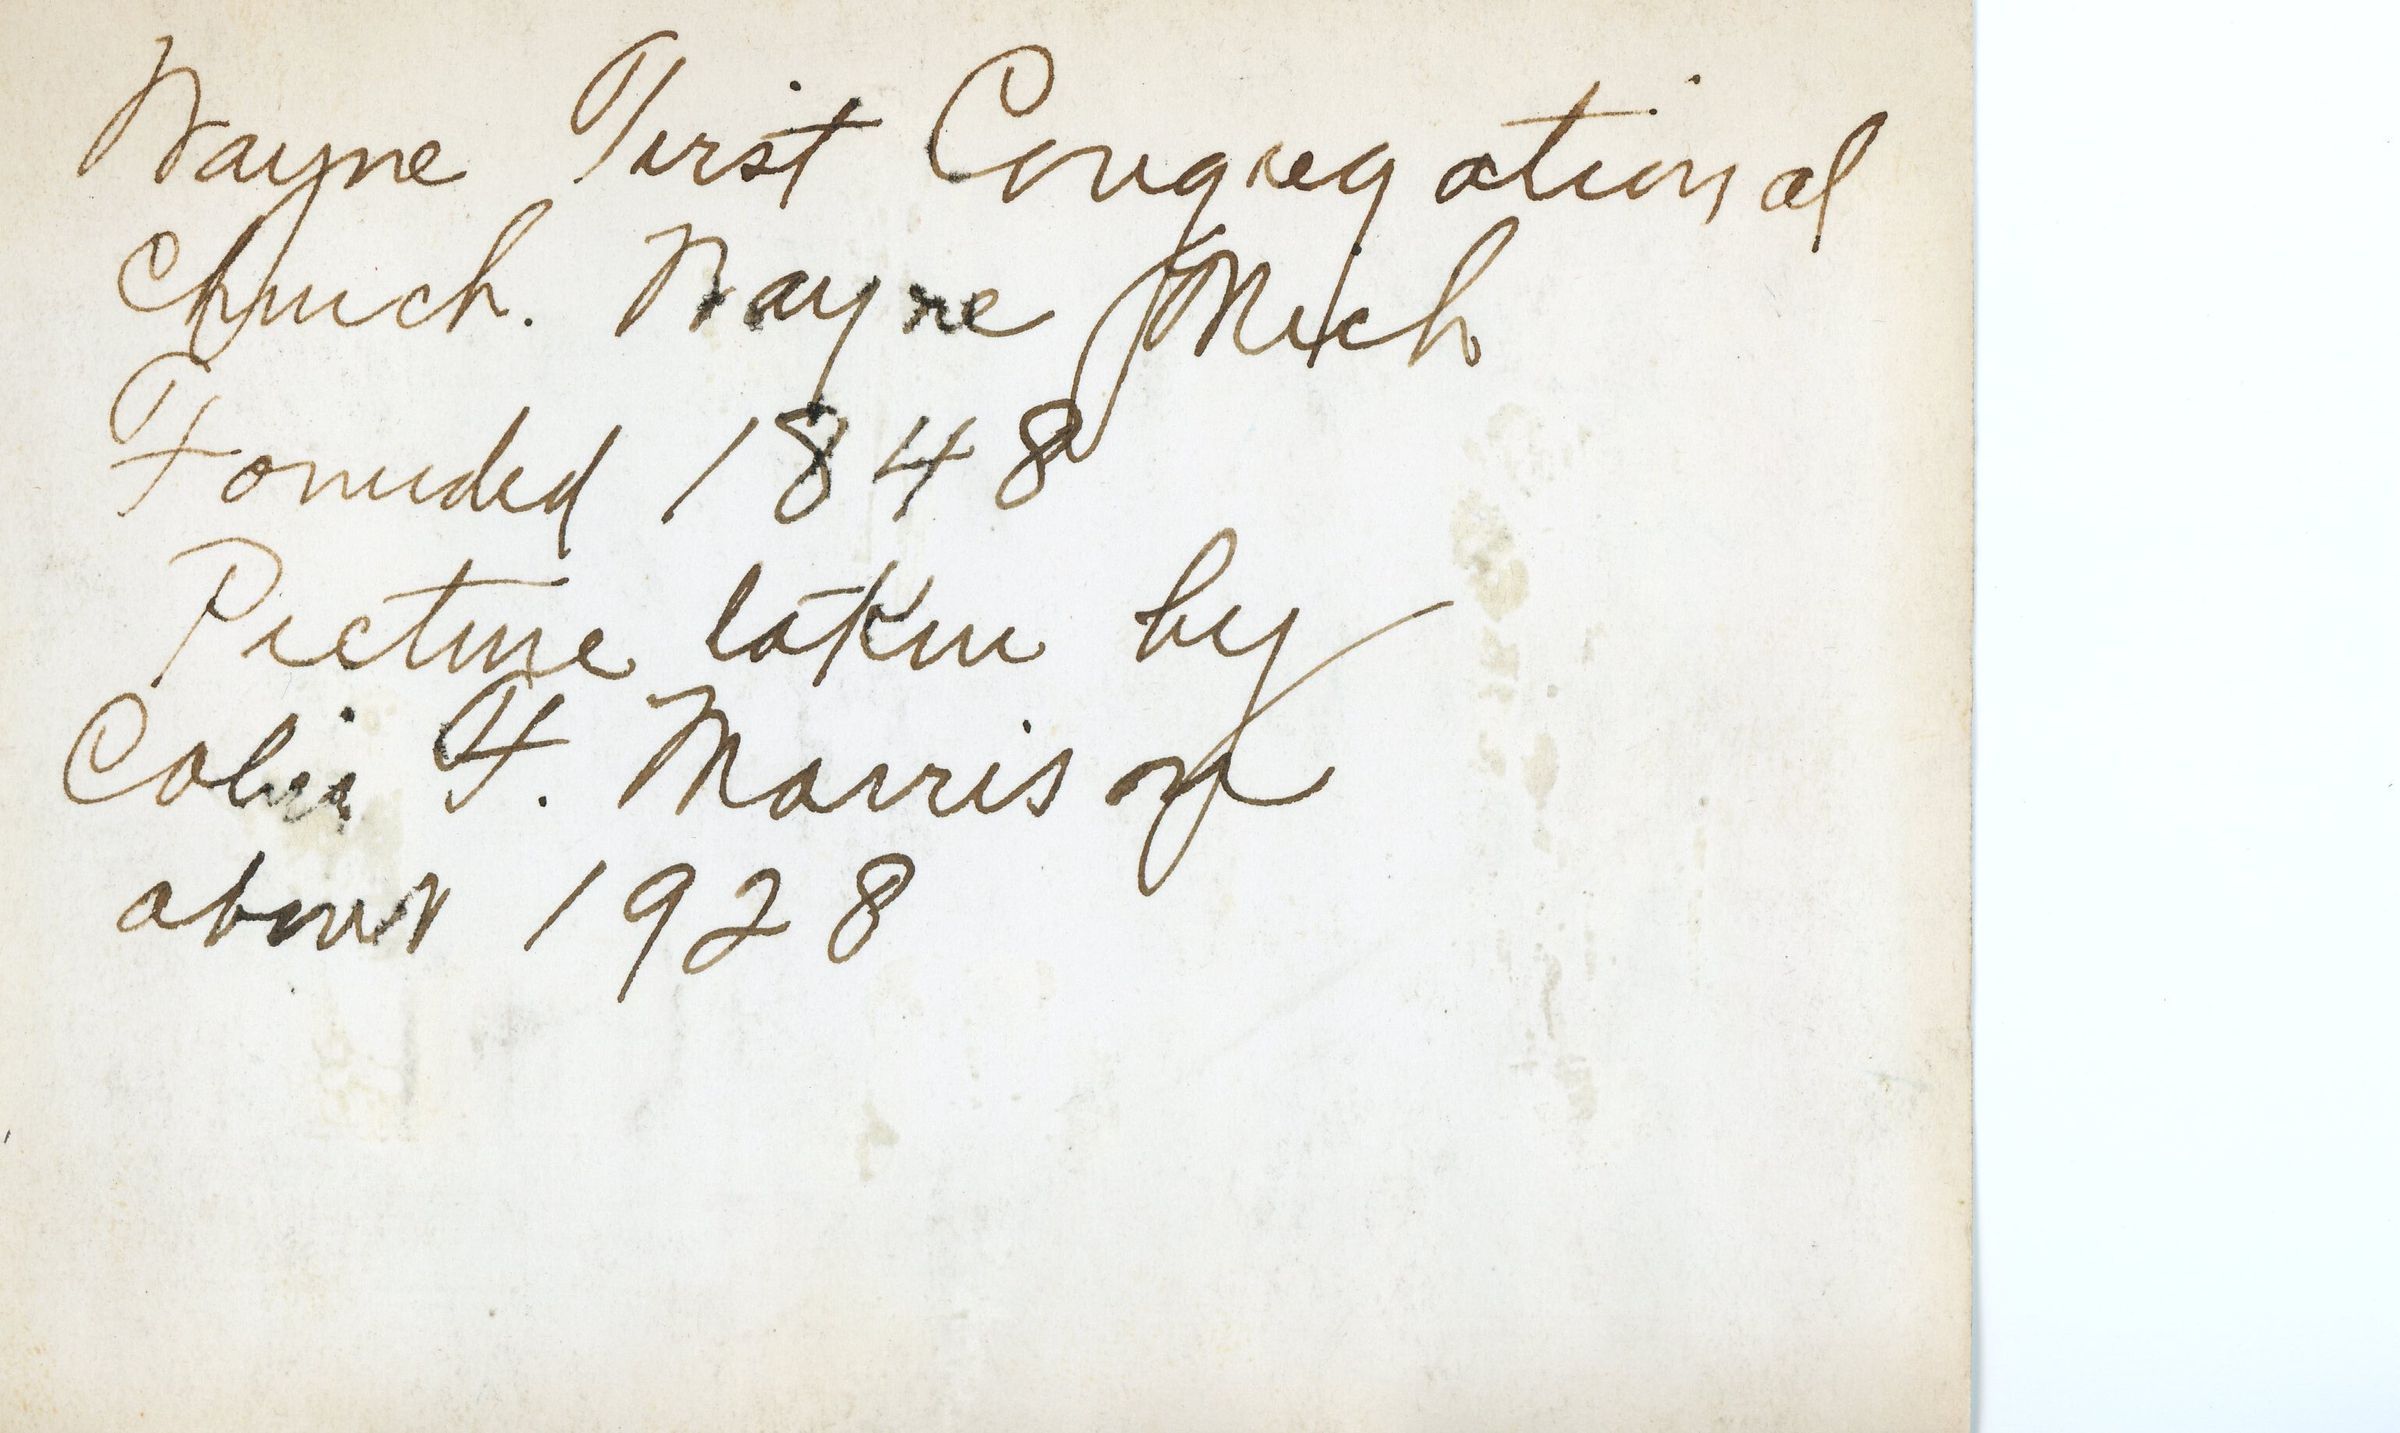 Wayne First Congregational
Church. Wayne Mich
Founded 1848
Picture taken by
Colin F. Morrison
about 1928